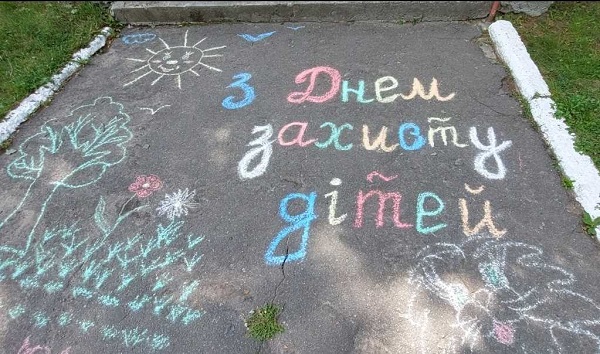 З Днем
захисту
дітей